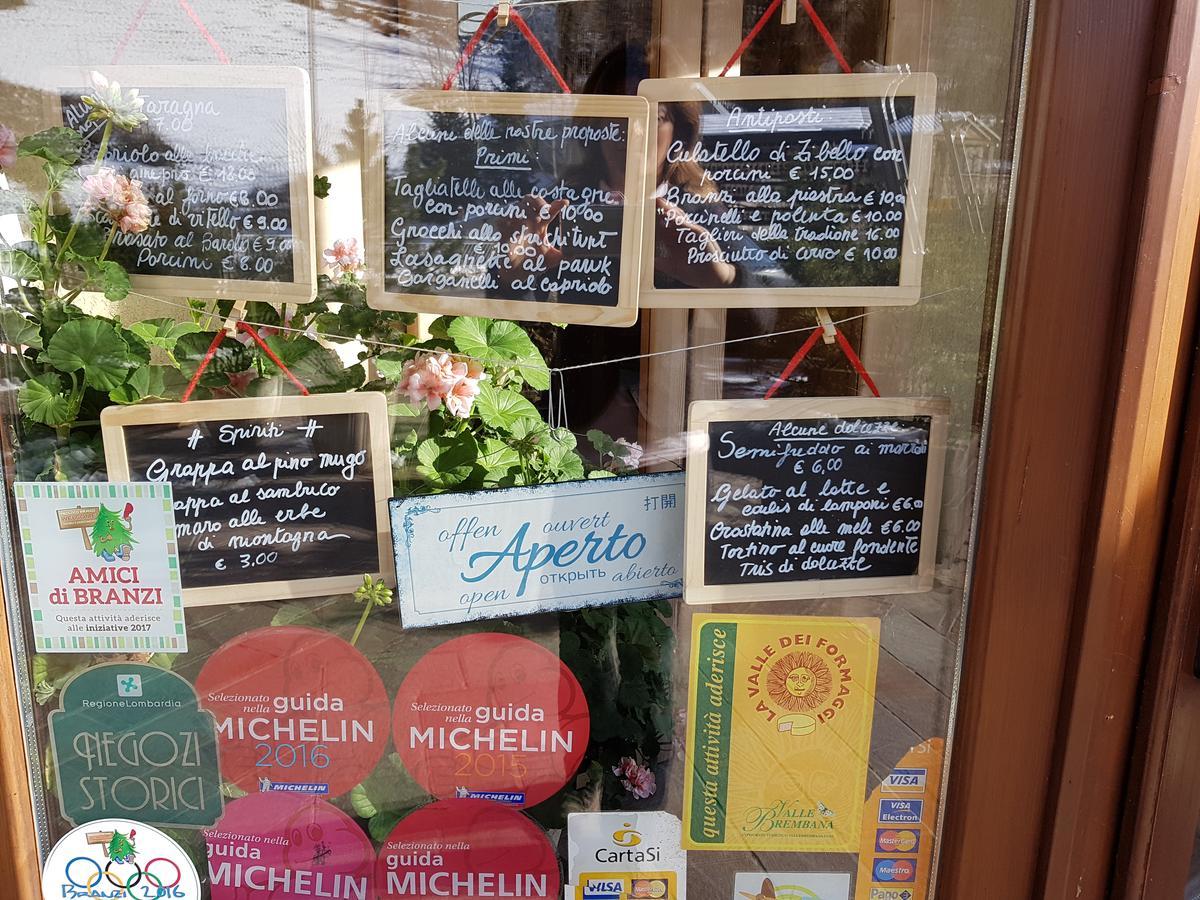 Taragna
7.00
€ 18.00
al forno €8.00
di vitello € 9.00
al Barolo € 9.00
Porcini € 8.00
Alcune delle nostre proposte:
Primi:
Tagliatelle alle castagne
con porcini € 10,00
Gnocchi allo strachitunt
€ 10.00
Lasagnette al pauk
Garganelli al capriolo
Antipasti:
Culatello di Zibello con
porcini € 15,00
Branzi alla piastra € 10,00
"Porcinelli e polenta € 10.00
Taglieri della tradione 16.00
Prosciutto di cervo € 10.00
# Spiriti #
Grappa al pino mugo
appa al sambuco
maro alle erbe
di montagna
€ 3,00
offen
ouvert
打開
Aperto
открыть
abierto
open
Alcune dolcezze
Semifreddo ai
€ 6,00
Gelato al latte e
coulis di lamponi €6.00
Crostatina alle mele €6.00
Tortino al cuore fondente
Tris di dolcezze
AMICI
di BRANZI
Questa attività aderisce
alle iniziative 2017
RegioneLombardia
NEGOZI
STORICI
Selezionato
nella guida
MICHELIN
2016
MICHELIN
Selezionato
nella guida
MICHELIN
2015
MICHELIN
Selezionato nella
guida
MICHELIN
Selezionato nella
guida
MICHELIN
BRANZI 2016
questa attività aderisce
LA VALLE DEI FORMAGGI
VALLE
BREMBANA
CartaSi
VISA
MasterCard
VISA
VISA
Electron
MasterCard
Maestro
Pago